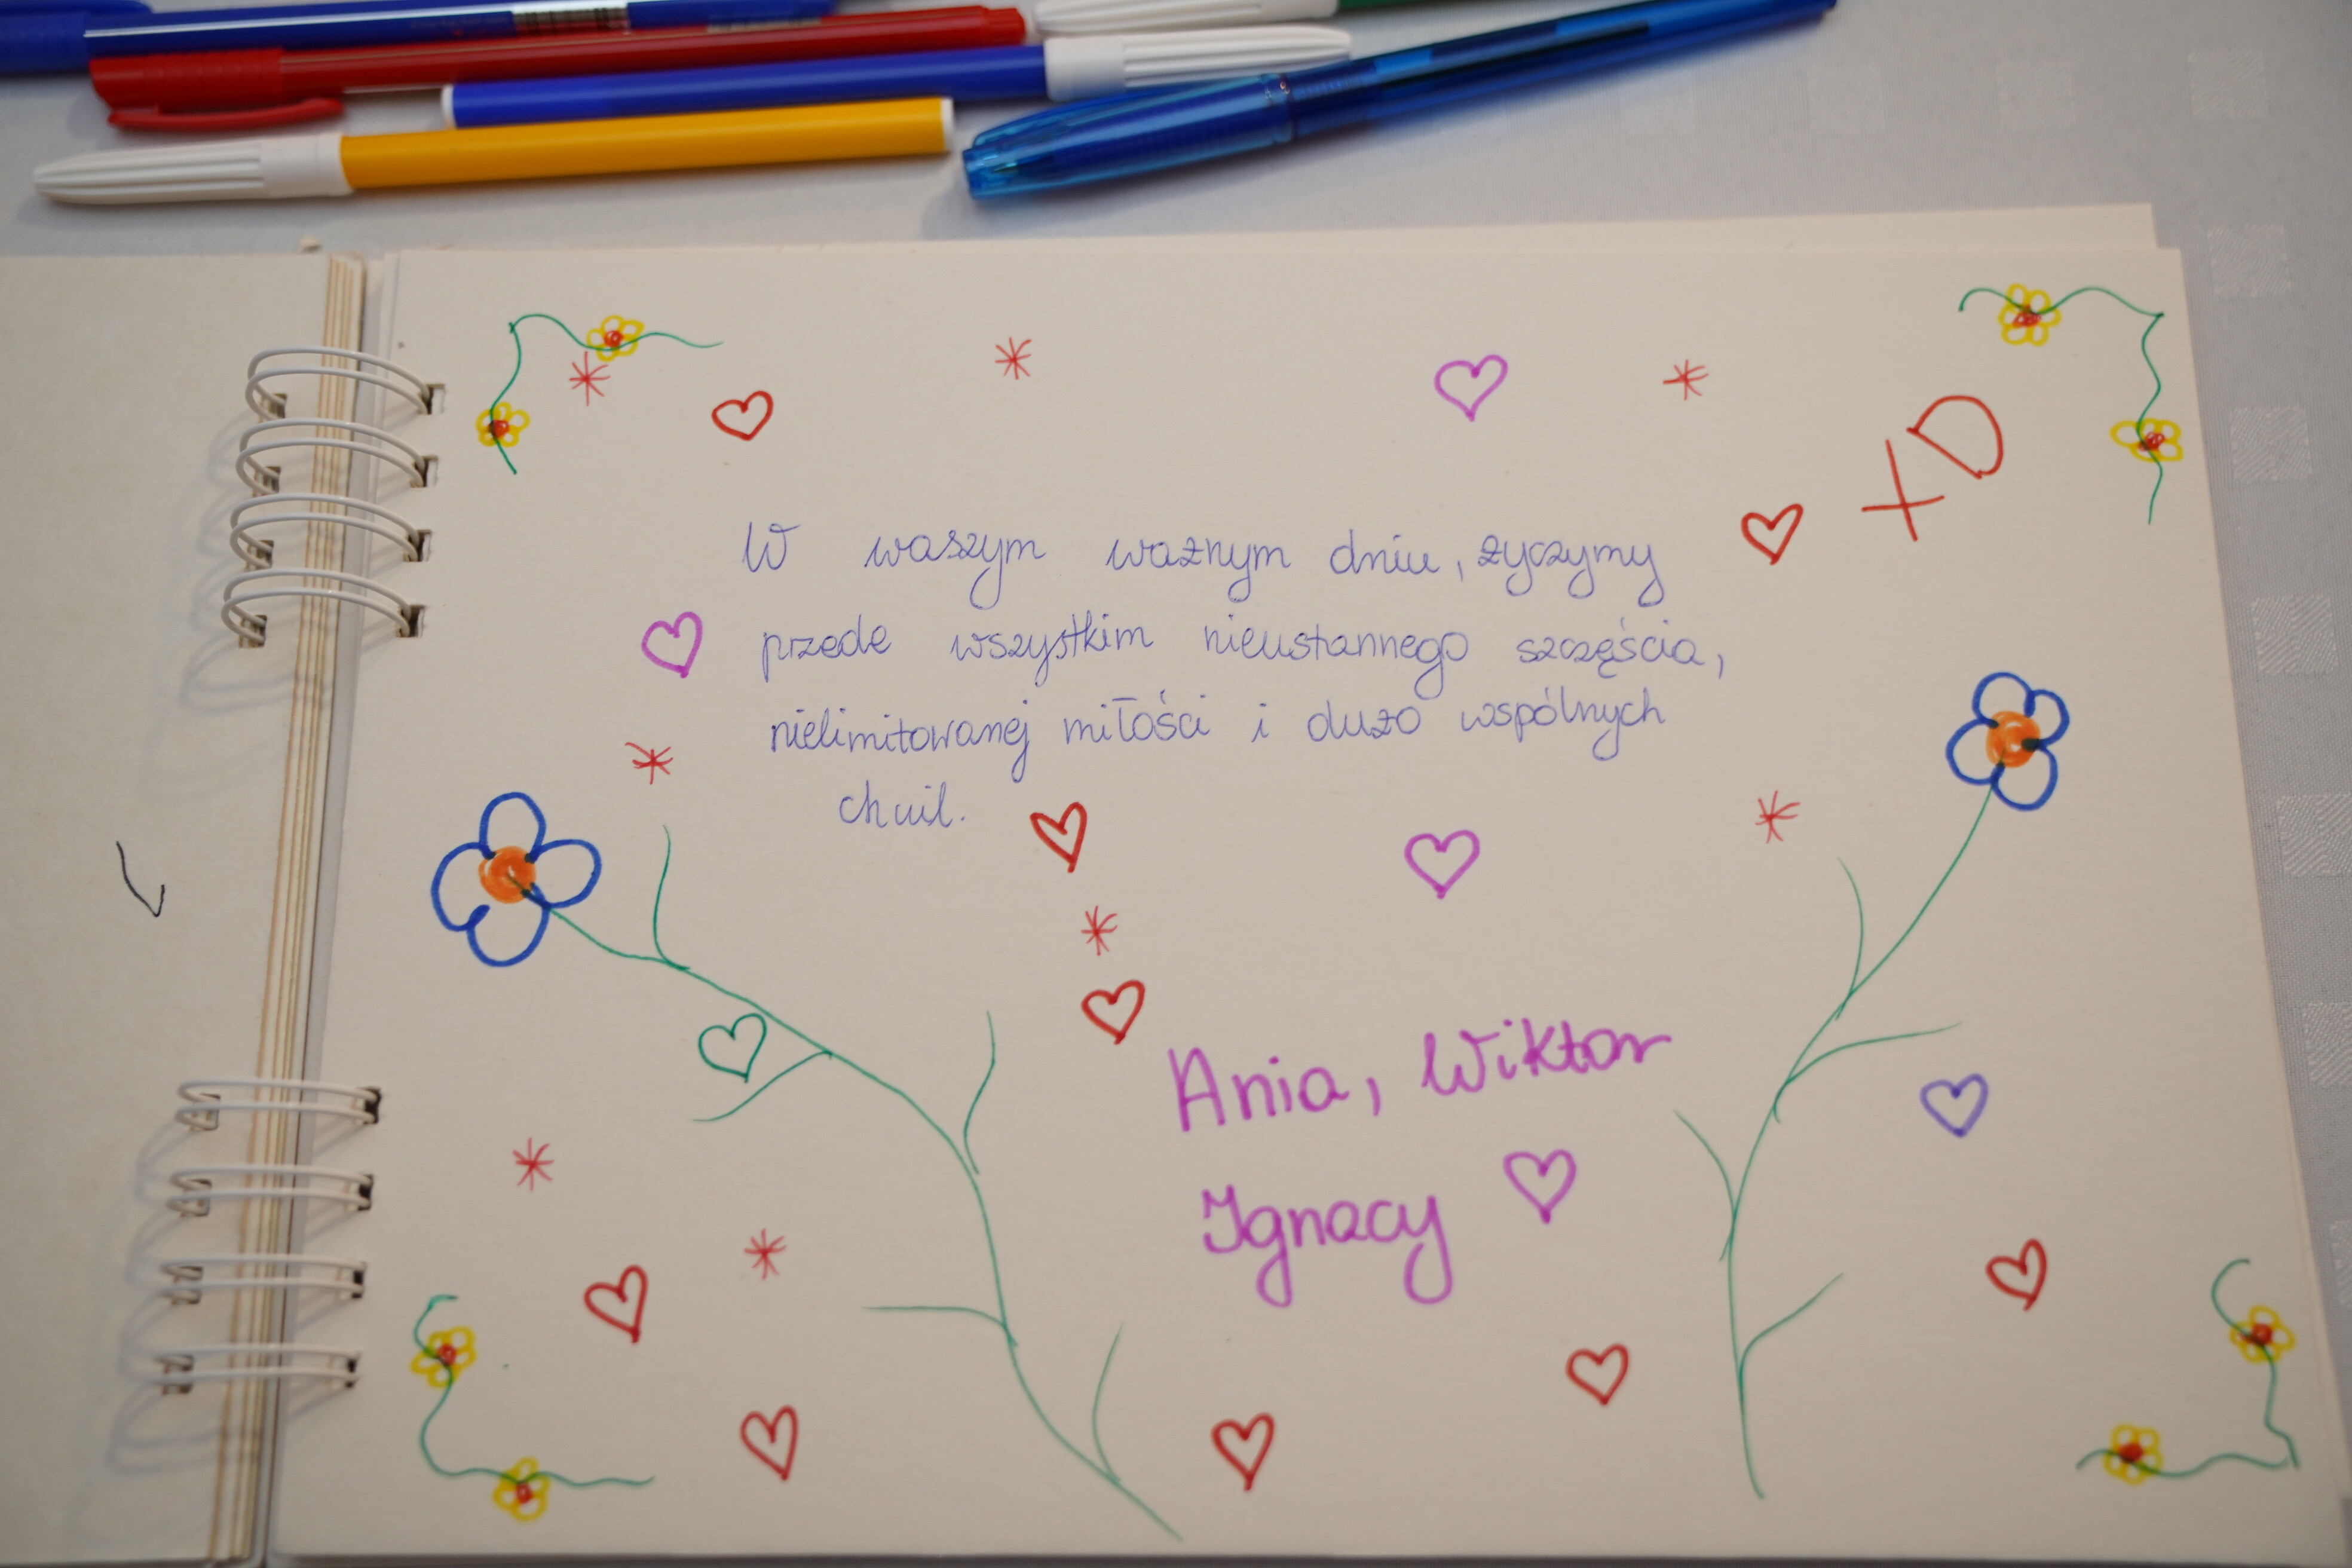 XD
W waszym ważnym dniu, życzymy
przede wszystkim nieustannego szczęścia,
nielimitowanej miłości i dużo wspólnych
chwil.
Ania, Wiktor
Ignacy